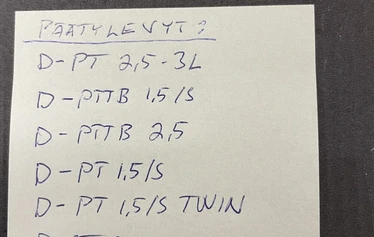 PÄÄTYLEVYT:
D-PT 2,5-3L
D-PTTB 1,5/S
D-PTTB 2,5
D-PT 1,5/S
D-PT 1,5/S TWIN